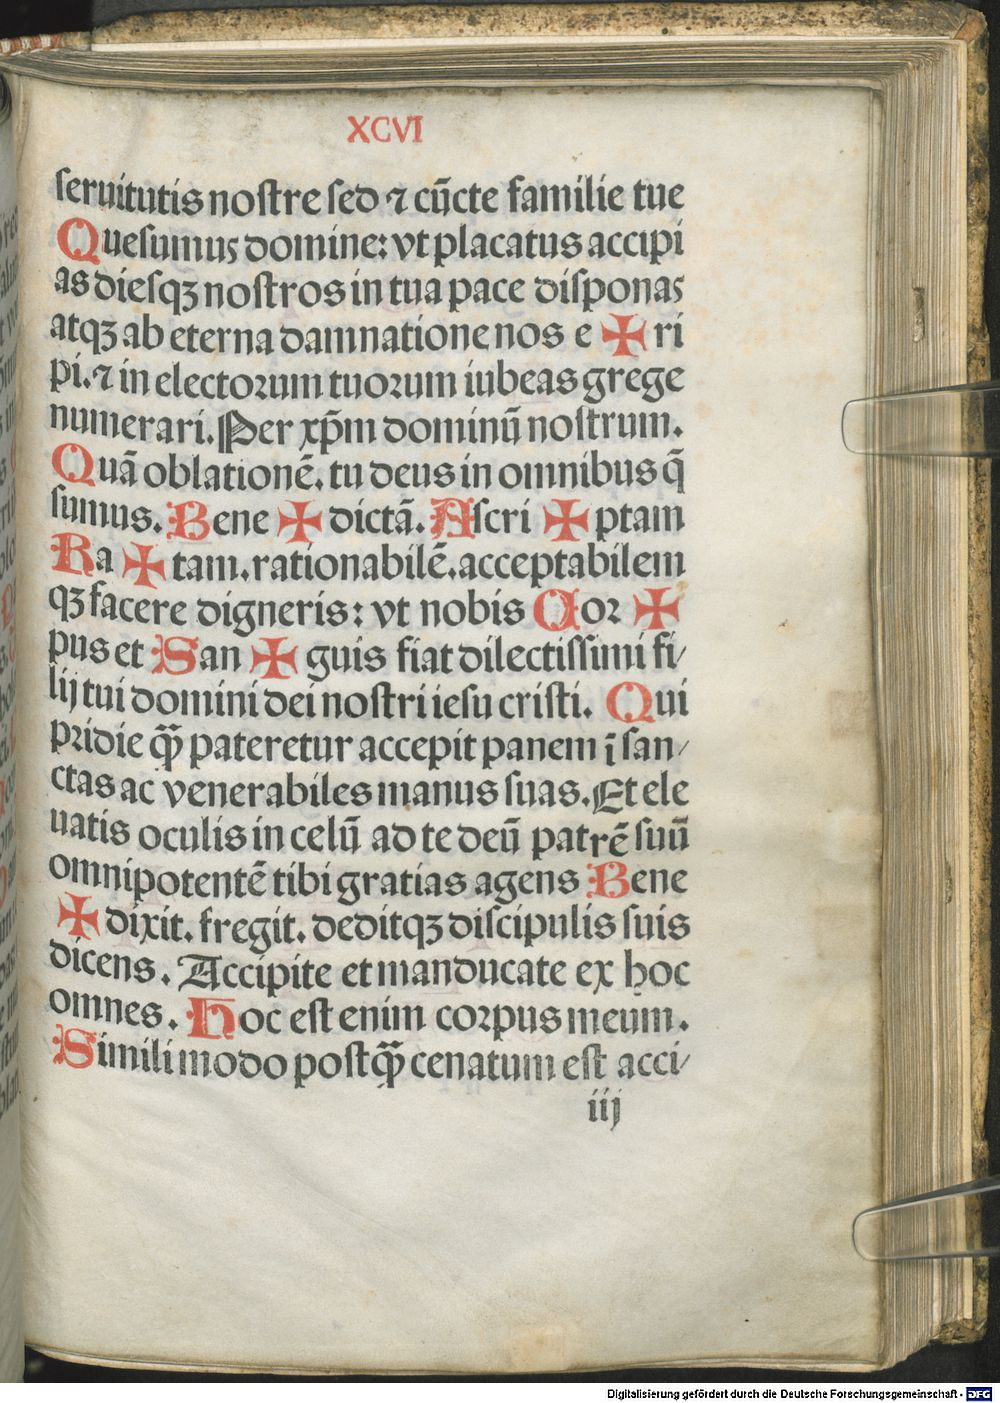 XCVI
seruitutis nostre sed ⁊ cūcte familie tue
Quesumus domine: vt placatus accipi
as diesqꝫ nostros in tua pace disponas
atqꝫ ab eterna damnatione nos e ✠ ri
pi. ⁊ in electoꝛum tuoꝛum iubeas grege
numerari. Per xp̄m dominū nostrum.
Quā oblationē. tu deus in omnibus q̄
sumus. Bene ✠ dictā. Ascri ✠ ptam
Ra ✠ tam. rationabilē. acceptabilem
qꝫ facere digneris: vt nobis Coꝛ ✠
pus et San ✠ guis fiat dilectissimi fi/
lij tui domini dei nostri iesu cristi. Qui
pꝛidie qꝫ̄ pateretur accepit panem ī san/
ctas ac venerabiles manus suas. Et ele
uatis oculis in celū ad te deū patrē suū
omnipotentē tibi gratias agens Bene
✠ dixit. fregit. deditqꝫ discipulis suis
dicens. Accipite et manducate ex hoc
omnes. Hoc est enim coꝛpus meum.
Simili modo postqꝫ̄ cenatum est acci/
iij
Digitalisierung gefördert durch die Deutsche Forschungsgemeinschaft - DFG